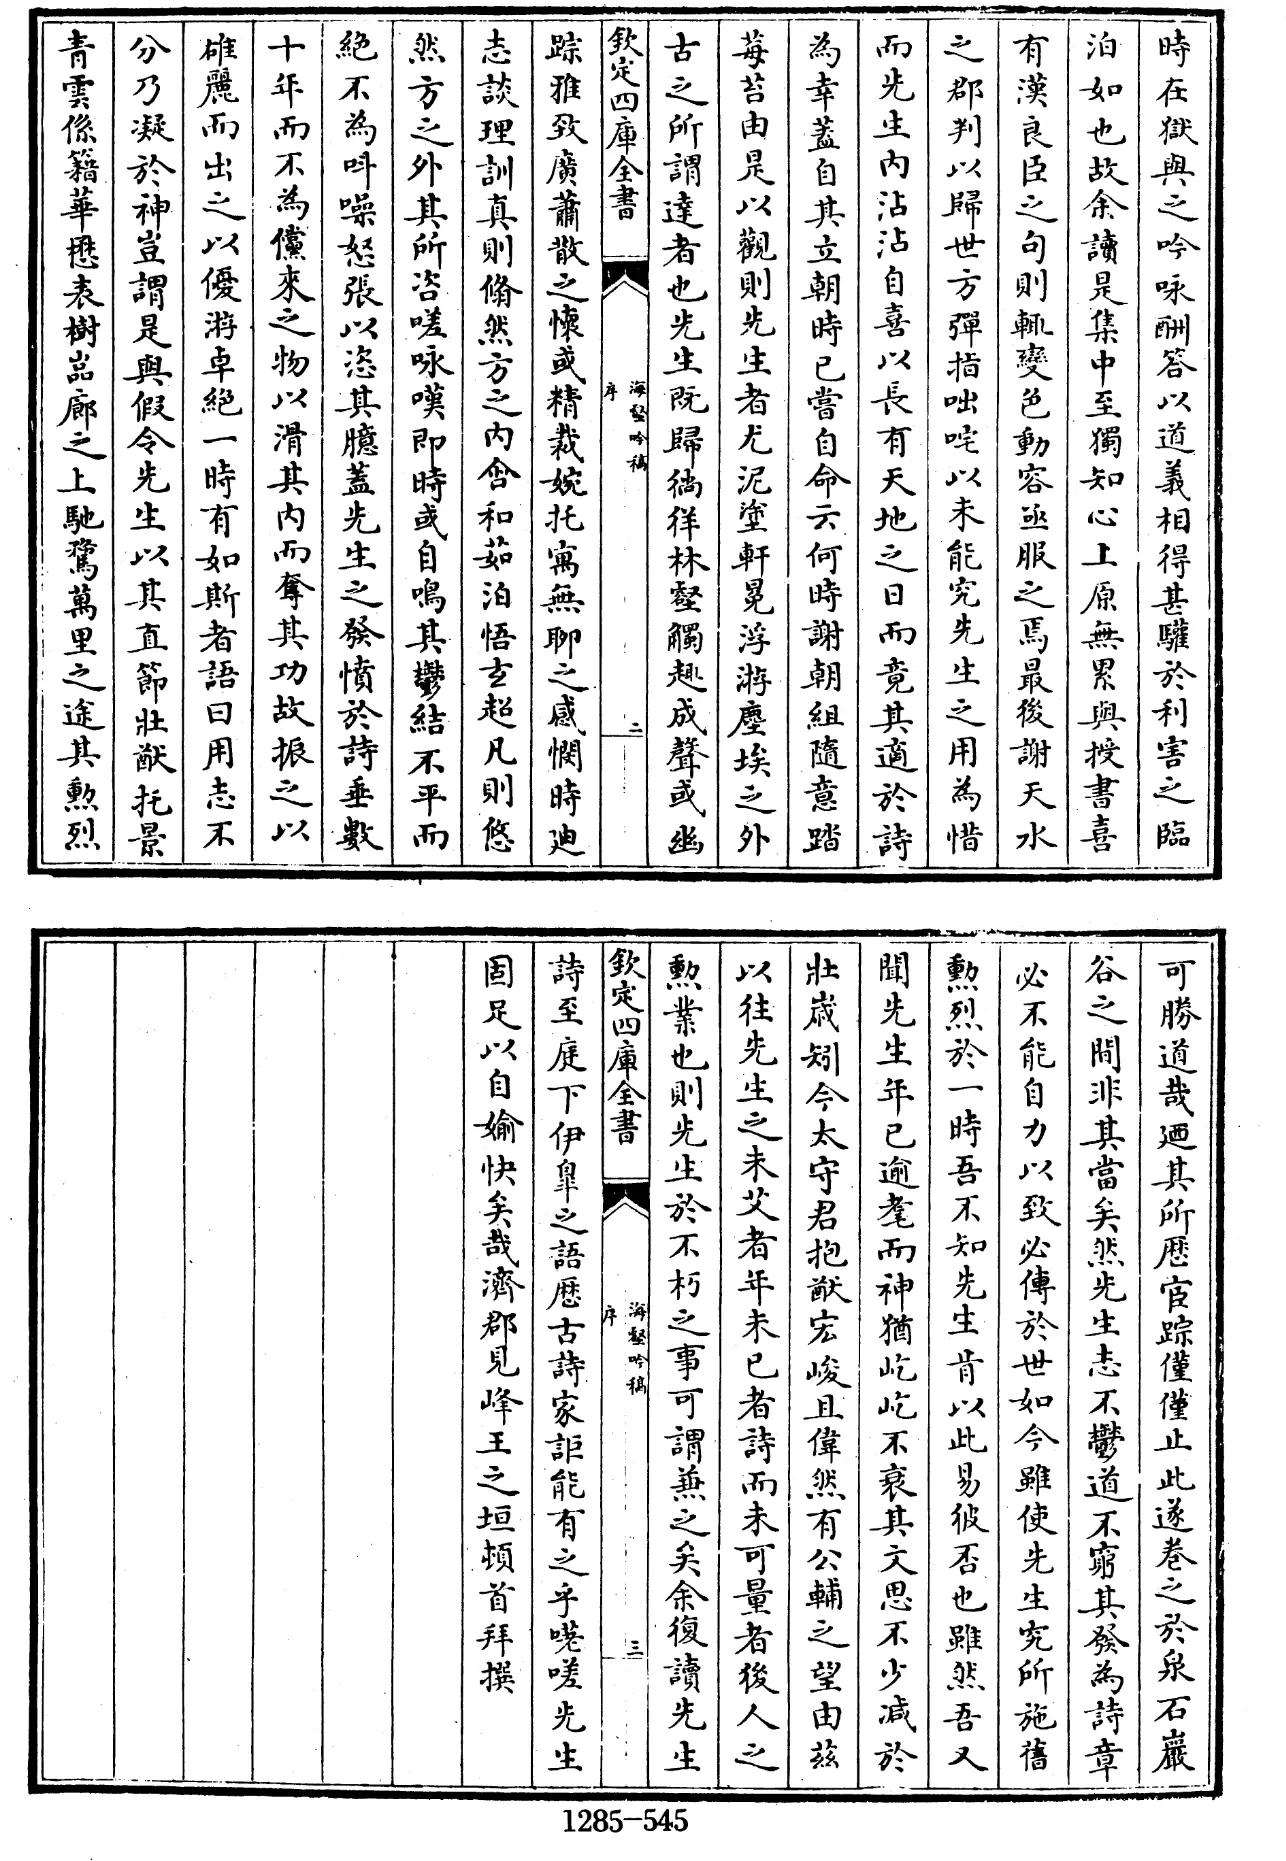 時在獄與之吟咏酬答以道義相得甚驩於利害之臨
泊如也故余讀是集中至獨知心上原無累與授書喜
有漢良臣之句則輒變色動容亟服之焉最後謝天水
之郡判以歸世方彈指咄咤以未能究先生之用為惜
而先生内沾沾自喜以長有天地之日而竟其適於詩
為幸蓋自其立朝時已嘗自命云何時謝朝組隨意踏
莓苔由是以觀則先生者尤泥塗軒冕浮游塵埃之外
古之所謂達者也先生既歸徜徉林壑觸趣成聲或幽
欽定四庫全書
海壑吟稿
序
二
踪雅致廣蕭散之懷或精裁婉托寓無聊之感憫時迪
志談理訓真則翛然方之内含和茹泊悟玄超凡則悠
然方之外其所咨嗟咏嘆即時或自鳴其鬱結不平而
絶不為呌噪怒張以恣其臆蓋先生之發憤於詩垂數
十年而不為儻來之物以滑其内而奪其功故振之以
雄麗而出之以優游卓絶一時有如斯者語曰用志不
分乃凝於神豈謂是與假令先生以其直節壯猷托景
青雲係籍華懋表樹嵓廊之上馳騖萬里之途其勲烈
可勝道哉廼其所歴宦踪僅僅止此遂卷之於泉石巖
谷之間非其當矣然先生志不鬱道不窮其發為詩章
必不能自力以致必傳於世如今雖使先生究所施蓄
勲烈於一時吾不知先生肯以此易彼否也雖然吾又
聞先生年已逾耄而神猶屹屹不衰其文思不少減於
壯嵗矧今太守君抱猷宏峻且偉然有公輔之望由兹
以往先生之未艾者年未已者詩而未可量者後人之
勲業也則先生於不朽之事可謂兼之矣余復讀先生
欽定四庫全書
海壑吟稿
序
三
詩至庭下伊臯之語歴古詩家詎能有之乎嘵嗟先生
固足以自媮快矣哉濟郡見峰王之垣頓首拜撰
1285-545